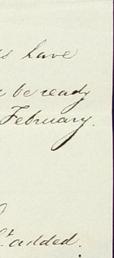 have
be ready
February.
added.